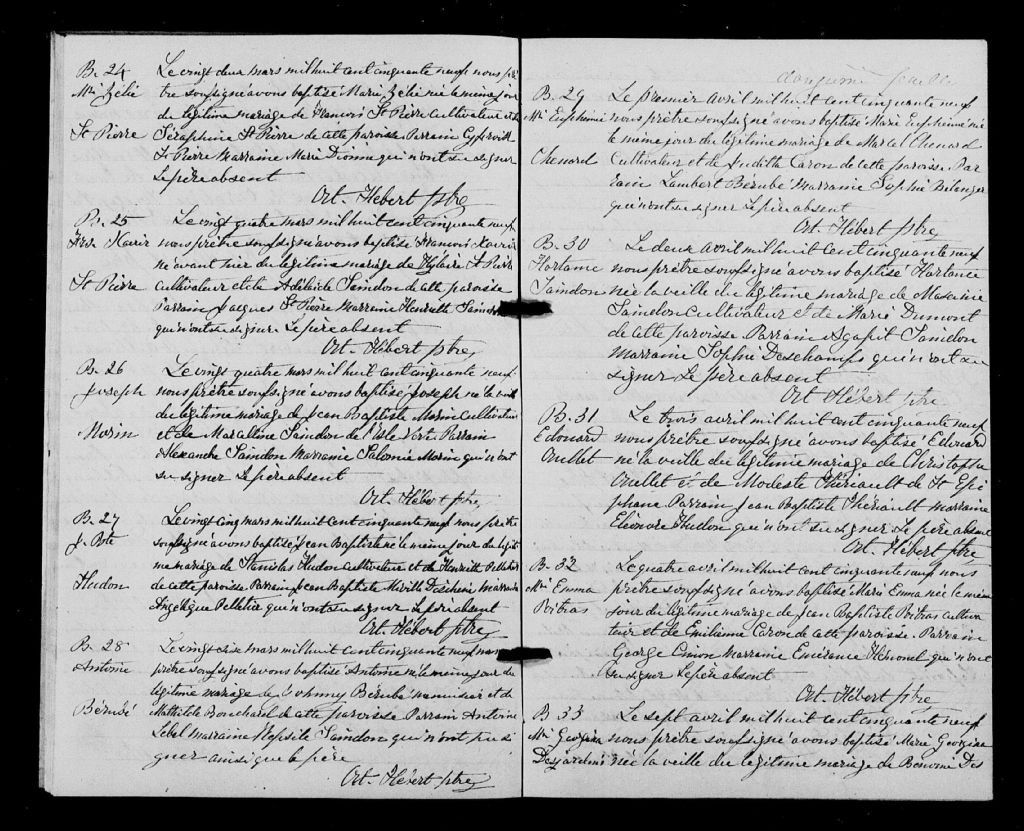 B. 24
Mie Zélie
St Pierre
Le vingt deux mars mil huit cent cinquante neuf nous prê
tre soussigné avons baptisé Marie Zélie née le même jour
du légitime mariage de St Pierre Cultivateur et de
Séraphine St Pierre de cette paroisse Parrain
St Pierre Marraine Marie Dionne qui n'ont su signer
Le père absent
Ort. Hébert ptre
B. 25
Frse Xavier
St Pierre
Le vingt quatre mars mil huit cent cinquante neuf
nous prêtre soussigné avons baptisé Francois Xavier
né avant hier du légitime mariage de Hylaire St Pierre
cultivateur et de Adélaide Saindon de cette paroisse
Parrain Jacques St Pierre Marraine Henriette Saindon
qui n'ont su signer Le père absent
Ort. Hébert ptre
B. 26
Joseph
Morin
Le vingt quatre mars mil huit cent cinquante neuf
nous prêtre soussigné avons baptisé Joseph né la veille
du légitime mariage de Jean Baptiste Morin Cultivateur
et de Marcelline Saindon de l'Isle Verte Parrain
Alexandre Saindon Marraine Salomie Morin qui n'ont
su signer Le père absent
Ort. Hébert ptre
B. 27
J. Bte
Hudon
Le vingt cinq mars mil huit cent cinquante neuf nous prêtre
soussigné avons baptisé Jean Baptiste né le même jour du légiti
me mariage de Stanislas Hudon Cultivateur et de Henriette Pelletier
de cette paroisse Parrain Jean Baptiste Miville Deschene marraine
Angélique Pelletier qui n'ont su signer Le père absent
Ort. Hébert ptre
B. 28
Antoine
Bérubé
Le vingt six mars mil huit cent cinquante neuf nous
prêtre soussigné avons baptisé Antoine né le même jour du
légitime mariage de Johnny Bérubé menuisier et de
Mathilde Bouchard de cette paroisse Parrain Antoine
Lebel marraine Saindon qui n'ont pu si
gner ainsi que le père
Ort. Hébert ptre
B. 29
Mie Euphemie
Chenard
Le premier avril mil huit cent cinquante neuf
nous prêtre soussigné avons baptisé Marie Euphemie née
le même jour du légitime mariage de Marcel Chenard
Cultivateur et de Judith Caron de cette paroisse Par
rain Lambert Bérubé Marraine Sophie Belanger
qui n'ont su signer Le père absent
Ort. Hébert ptre
B. 30
Hortance
Saindon
Le deux avril mil huit cent cinquante neuf
nous prêtre soussigné avons baptisé Hortance
née la veille du légitime mariage de Maxime
Saindon Cultivateur et de Marie Dumont
de cette paroisse Parrain Agapit Saindon
Marraine Sophie Deschamps qui n'ont su
signer Le père absent
Ort Hébert ptre
B. 31
Edouard
Ouellet
Le trois avril mil huit cent cinquante neuf
nous prêtre soussigné avons baptisé Edouard
né la veille du légitime mariage de Christophe
Ouellet et de Modeste Thériault de St Epi
phane Parrain Jean Baptiste Thériault marraine
Eléonore Hudon qui n'ont su signer Le père absent
Ort. Hébert ptre
B. 32
Mie Emma
Poitras
Le quatre avril mil huit cent cinquante neuf nous
prêtre soussigné avons baptisé Marie Emma née le même
jour du légitime mariage de Jean Baptiste Poitras cultiva
teur et de Emilienne Caron de cette paroisse Parrain
George Marraine qui n'ont
su signer Le père absent
Ort. Hébert ptre
B 33
Mie Georgina
Desjardins
Le sept avril mil huit cent cinquante neuf
nous prêtre soussigné avons baptisé Marie Georgina
née la veille du légitime mariage de Bonomi Des